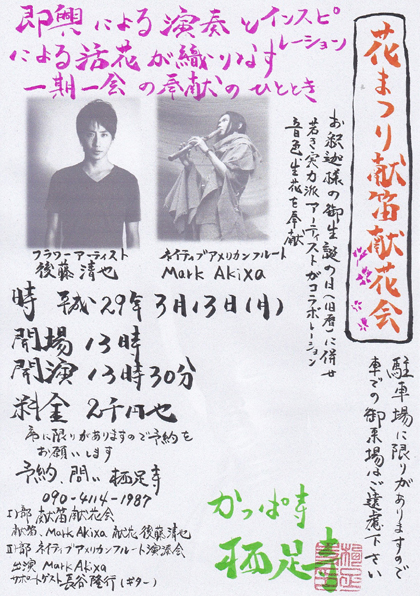 花まつり献笛献花会
即興による演奏とインスピレーション
による活花が織りなす
一期一会の奉献のひととき
お釈迦様の御生誕の日（旧暦）に併せ
若き実力派アーティストがコラボレーション
音色と生花を奉献
フラワーアーティスト
後藤清也
ネイティブアメリカンフルート
Mark Akixa
時 平成29年3月13日(月)
開場 13時
開演 13時30分
料金 2千円也
席に限りがありますので予約を
お願いします
予約、問い 栖足寺
090-4114-1987
I)部 献笛献花会
献笛、Mark Akixa 献花 後藤清也
II)部 ネイティブアメリカンフルート演奏会
出演 Mark Akixa
サポートゲスト 長谷隆行(ギター)
駐車場に限りがありますので
車での御来場はご遠慮下さい
かっぱ寺
栖足寺